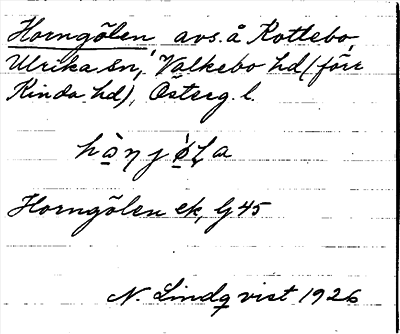 Horngölen avs. å Kottebo,
Ulrika sn, Valkebo hd (förr
Kinda hd), Österg. l.
hὰ̱ŋjø̱̀ɭa
Horngölen ek, Gj 45
N. Lindqvist 1926